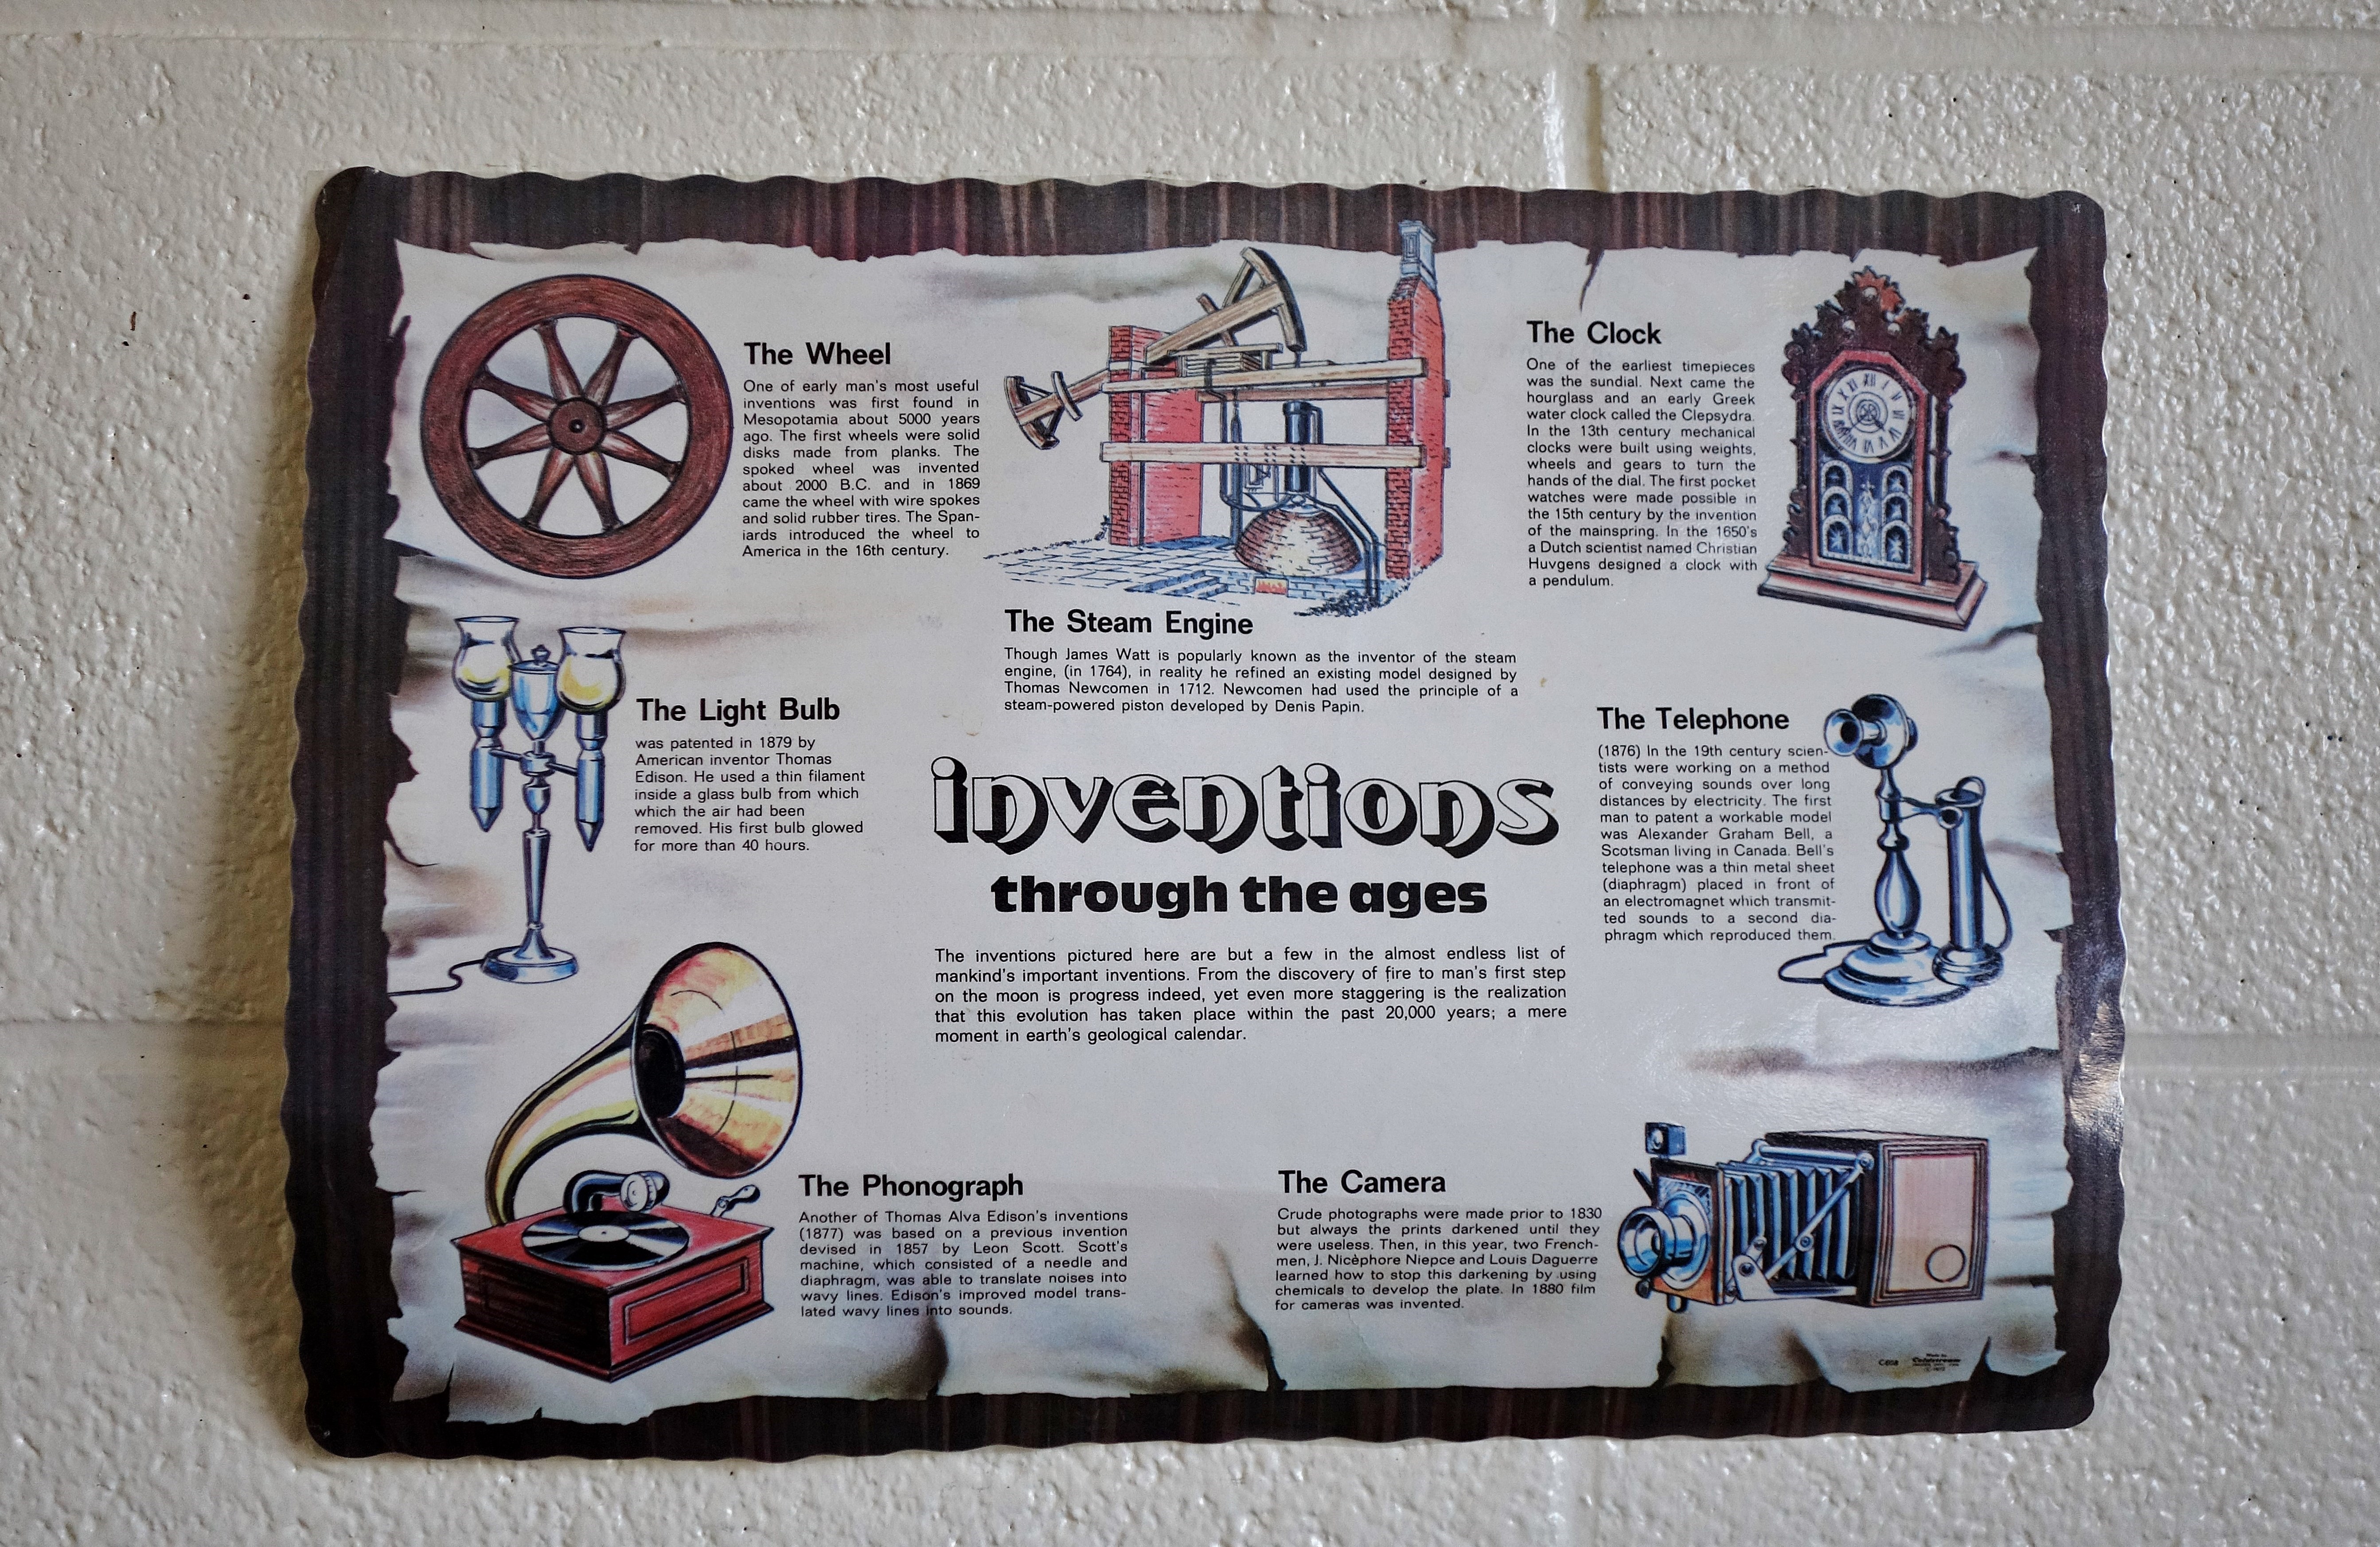 The Wheel
One of early man's most useful
inventions was first found in
Mesopotamia about 5000 years
ago. The first wheels were solid
disks made from planks. The
spoked wheel was invented
about 2000 B.C. and in 1869
came the wheel with wire spokes
and solid rubber tires. The Span-
iards introduced the wheel to
America in the 16th century.
The Steam Engine
Though James Watt is popularly known as the inventor of the steam
engine, (in 1764), in reality he refined an existing model designed by
Thomas Newcomen in 1712. Newcomen had used the principle of a
steam-powered piston developed by Denis Papin.
The Clock
One of the earliest timepieces
was the sundial. Next came the
hourglass and an early Greek
water clock called the Clepsydra.
In the 13th century mechanical
clocks were built using weights,
wheels and gears to turn the
hands of the dial. The first pocket
watches were made possible in
the 15th century by the invention
of the mainspring. In the 1650's
a Dutch scientist named Christian
Huvgens designed a clock with
a pendulum.
The Light Bulb
was patented in 1879 by
American inventor Thomas
Edison. He used a thin filament
inside a glass bulb from which
which the air had been
removed. His first bulb glowed
for more than 40 hours.
inventions
through the ages
The inventions pictured here are but a few in the almost endless list of
mankind's important inventions. From the discovery of fire to man's first step
on the moon is progress indeed, yet even more staggering is the realization
that this evolution has taken place within the past 20,000 years; a mere
moment in earth's geological calendar.
The Telephone
(1876) In the 19th century scien-
tists were working on a method
of conveying sounds over long
distances by electricity. The first
man to patent a workable model
was Alexander Graham Bell, a
Scotsman living in Canada. Bell's
telephone was a thin metal sheet
(diaphragm) placed in front of
an electromagnet which transmit-
ted sounds to a second dia-
phragm which reproduced them.
The Phonograph
Another of Thomas Alva Edison's inventions
(1877) was based on a previous invention
devised in 1857 by Leon Scott. Scott's
machine, which consisted of a needle and
diaphragm, was able to translate noises into
wavy lines. Edison's improved model trans-
lated wavy lines into sounds.
The Camera
Crude photographs were made prior to 1830
but always the prints darkened until they
were useless. Then, in this year, two French-
men, J. Nicèphore Niepce and Louis Daguerre
learned how to stop this darkening by using
chemicals to develop the plate. In 1880 film
for cameras was invented.